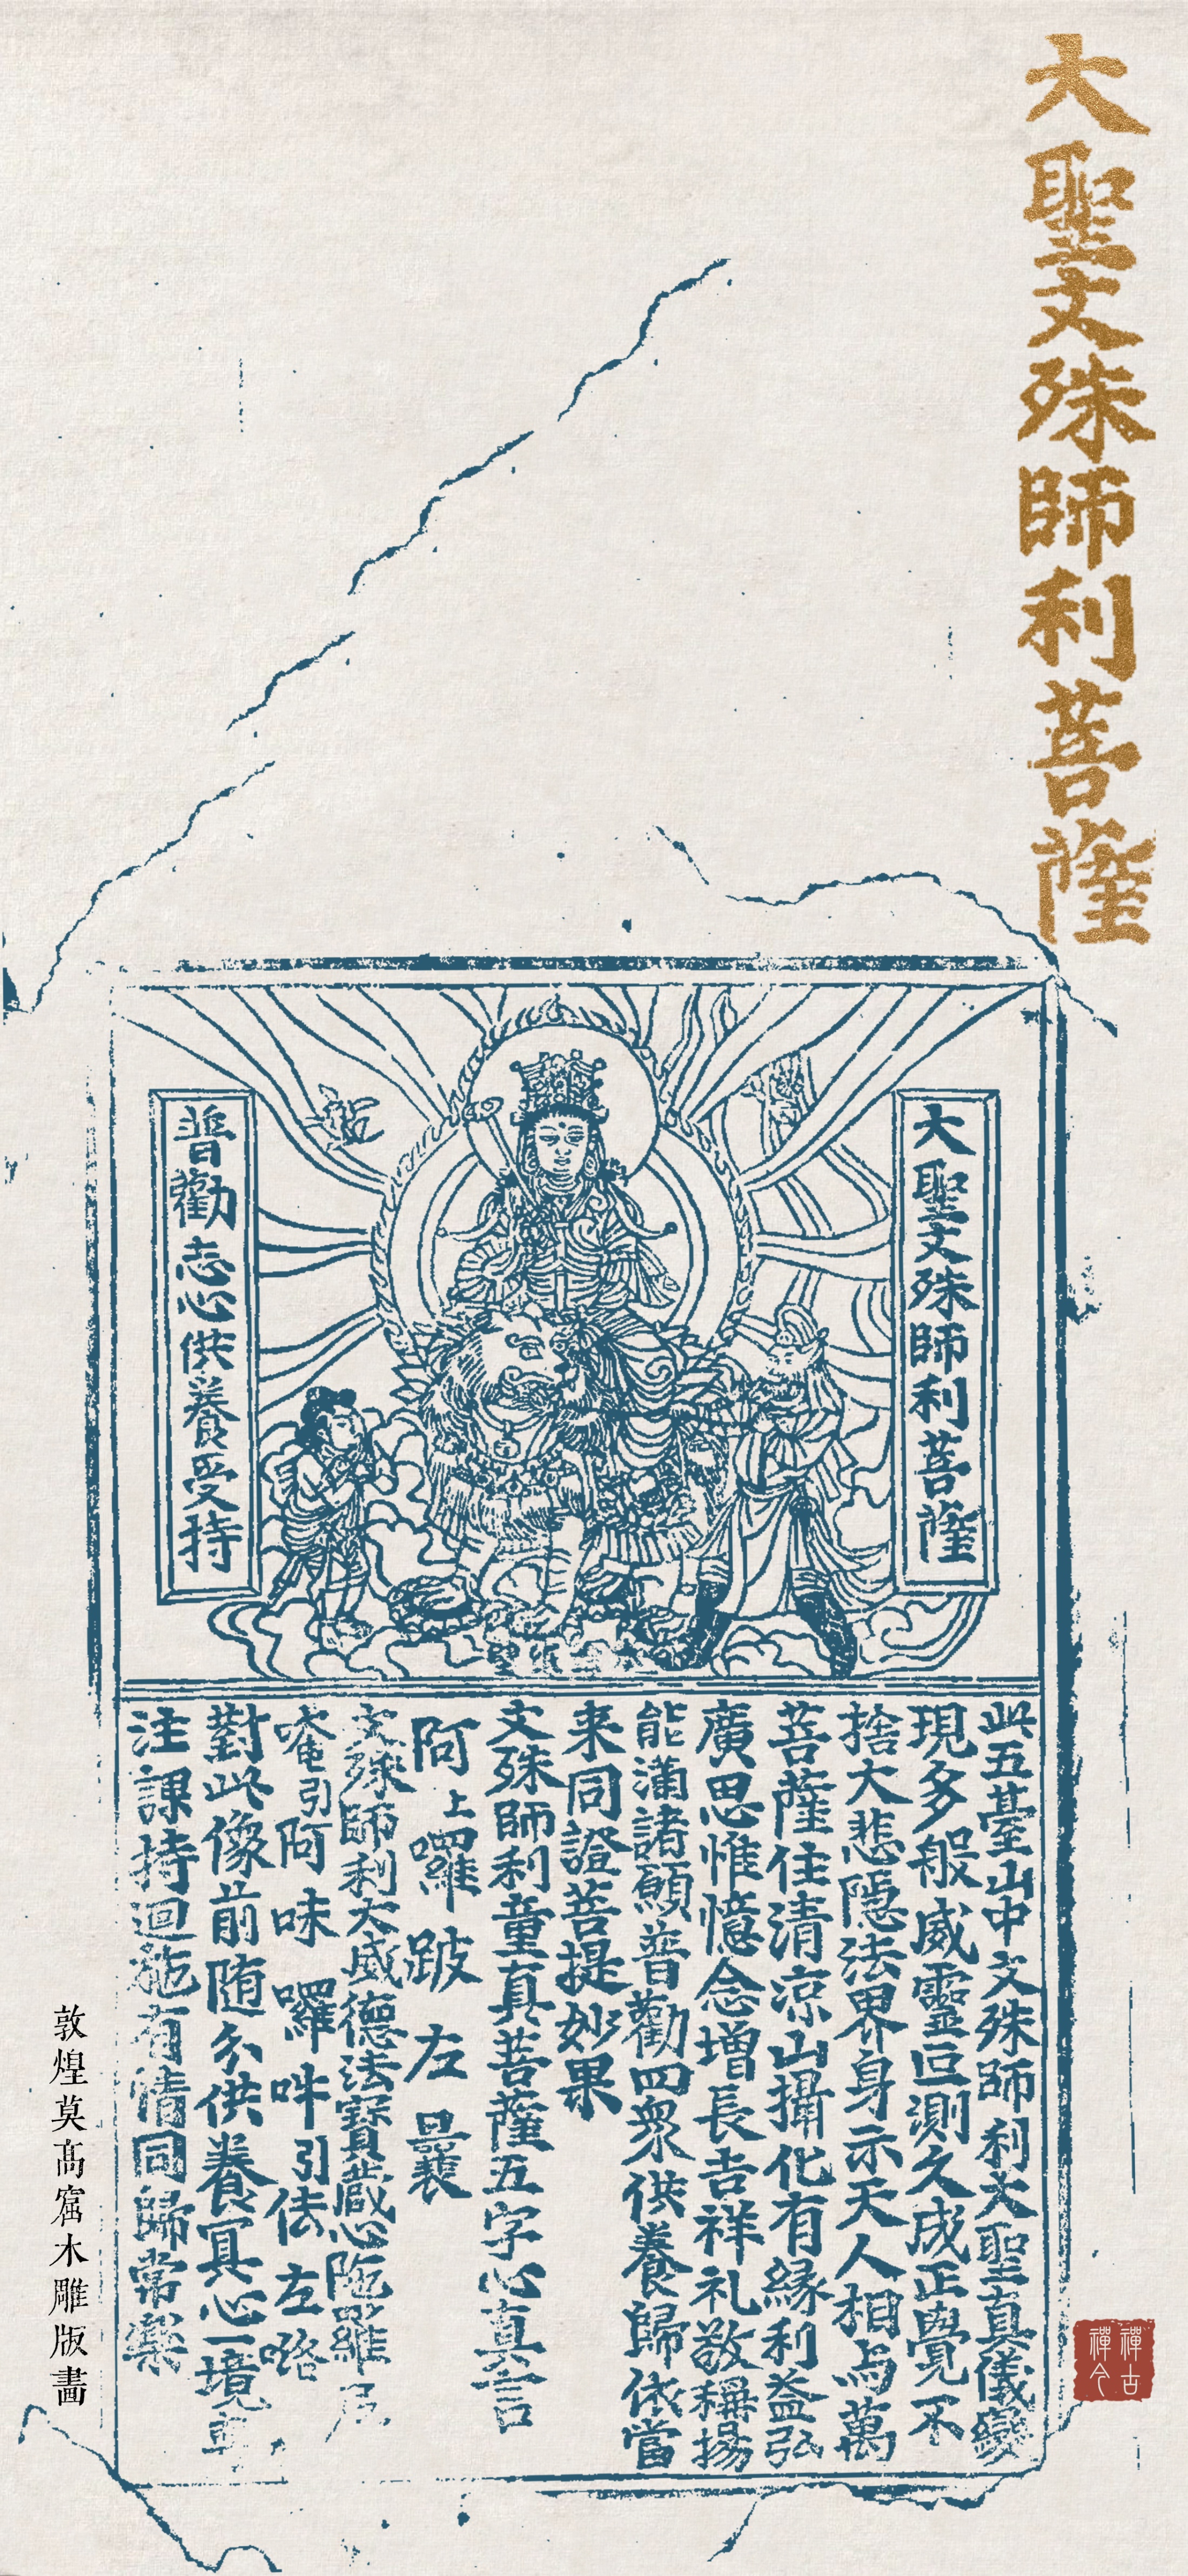 大聖文殊師利菩薩
大聖文殊師利菩薩
普勸志心供養受持
此五臺山中文殊師利大聖真儀變
現多般威靈叵測久成正覺不
捨大悲隱法界身示天人相与萬
菩薩住清涼山攝化有緣利益弘
廣思惟憶念增長吉祥礼敬稱揚
能滿諸願普勸四衆供養歸依當
来同證菩提妙果
文殊師利童真菩薩五字心真言
阿上囉跛左曩
文殊師利大威德法寶藏心陁羅尼
唵引阿味囉吽引佉左咯
對此像前随分供養冥心一境專
注課持迴施有情同歸常樂
敦煌莫高窟木雕版畵
禪古
禪今